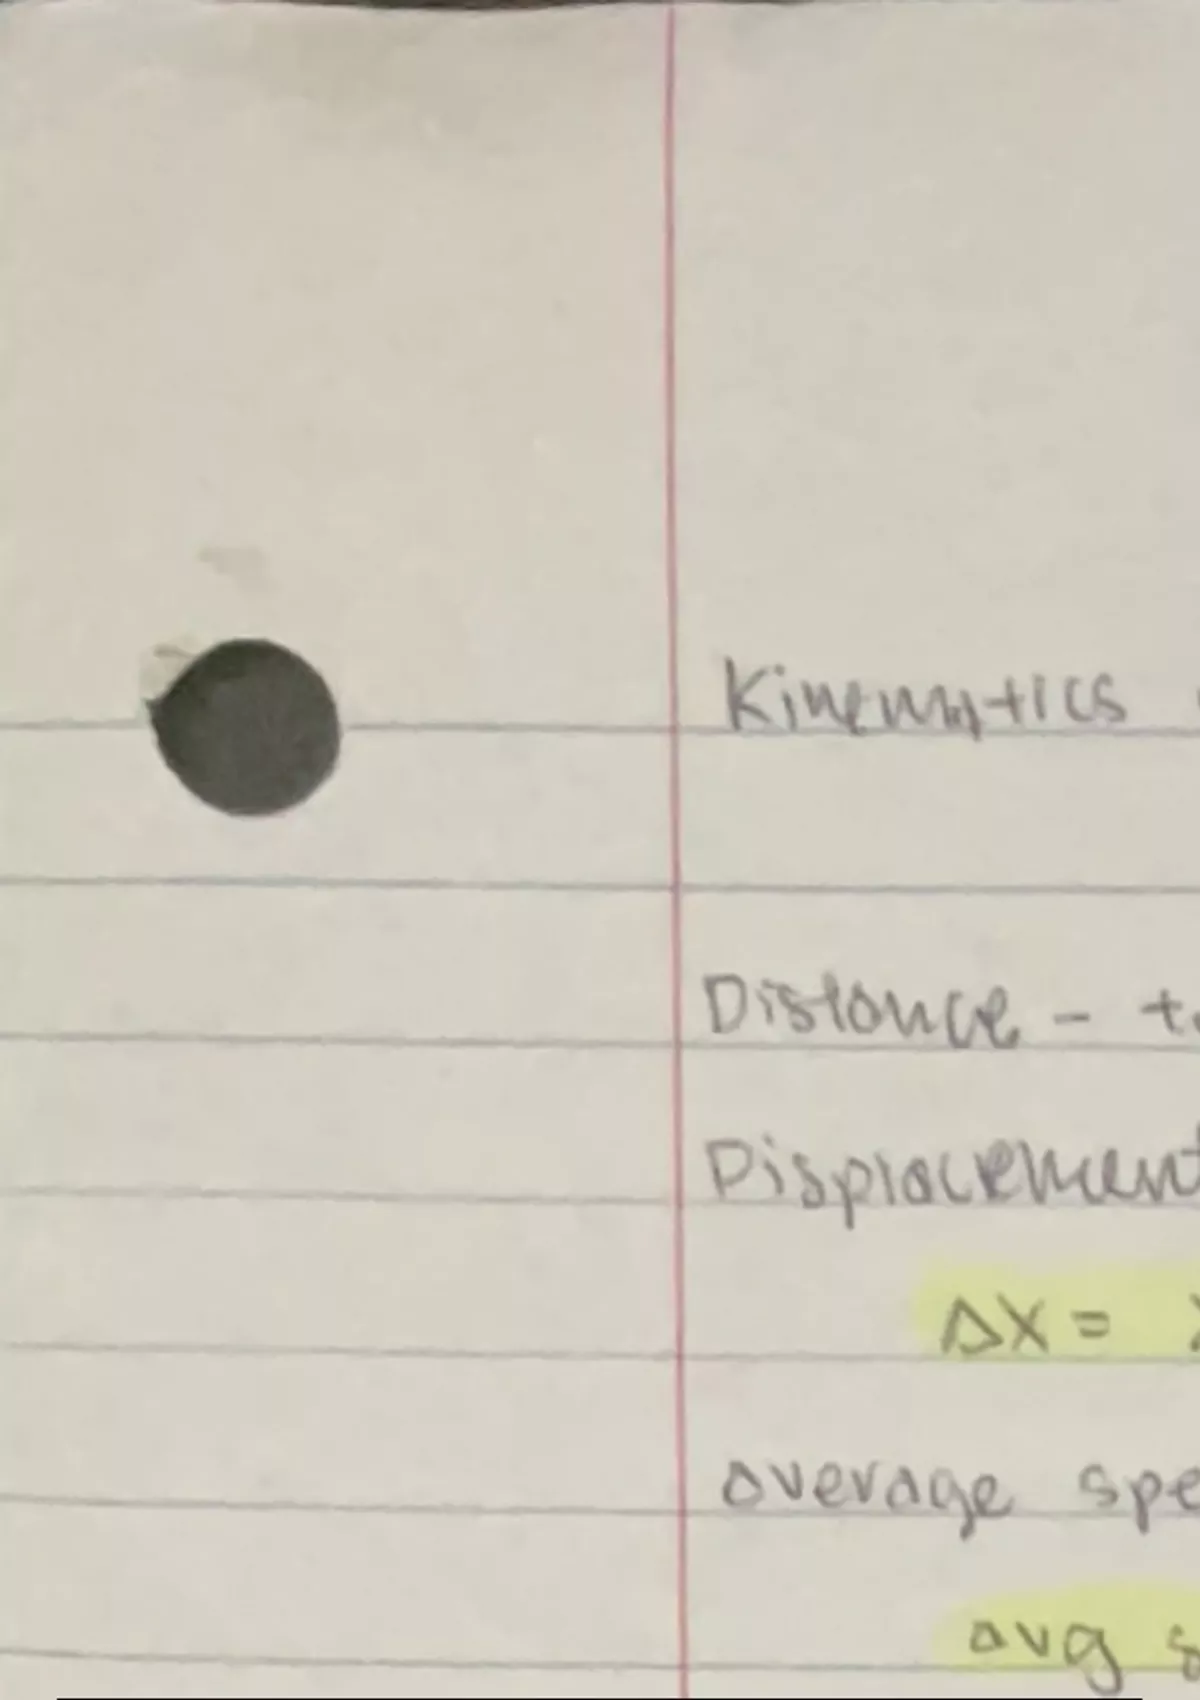 Kinematics
Distance -
Displacement
Δx =
average spe
avg s